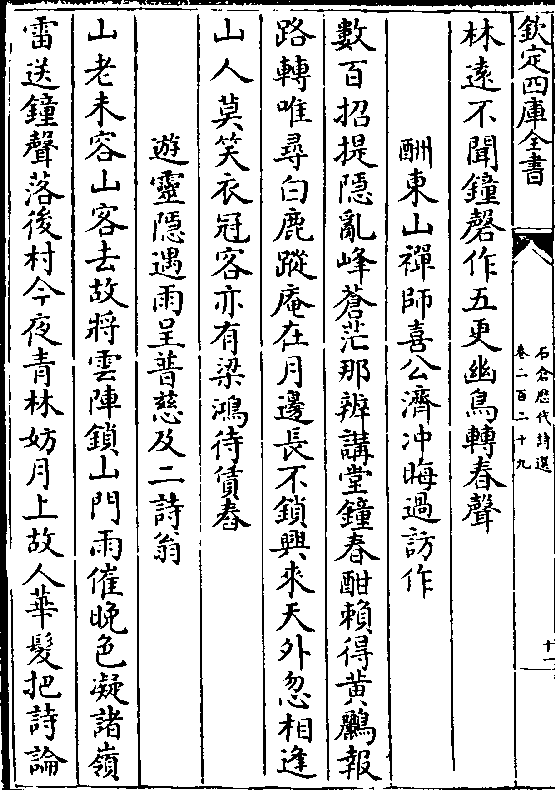 欽定四庫全書
石倉歷代詩選
卷二百二十九
十一
林遠不聞鐘磬作五更幽鳥轉春聲
酬東山禪師喜公濟冲晦過訪作
數百招提隱亂峰蒼茫那辨講堂鐘春酣賴得黃鸝報
路轉唯尋白鹿蹤庵在月邊長不鎖興來天外忽相逢
山人莫笑衣冠客亦有梁鴻待賃舂
遊靈隱遇雨呈普慈及二詩翁
山老未容山客去故將雲陣鎖山門雨催晚色凝諸嶺
雷送鐘聲落後村今夜青林妨月上故人華髮把詩論